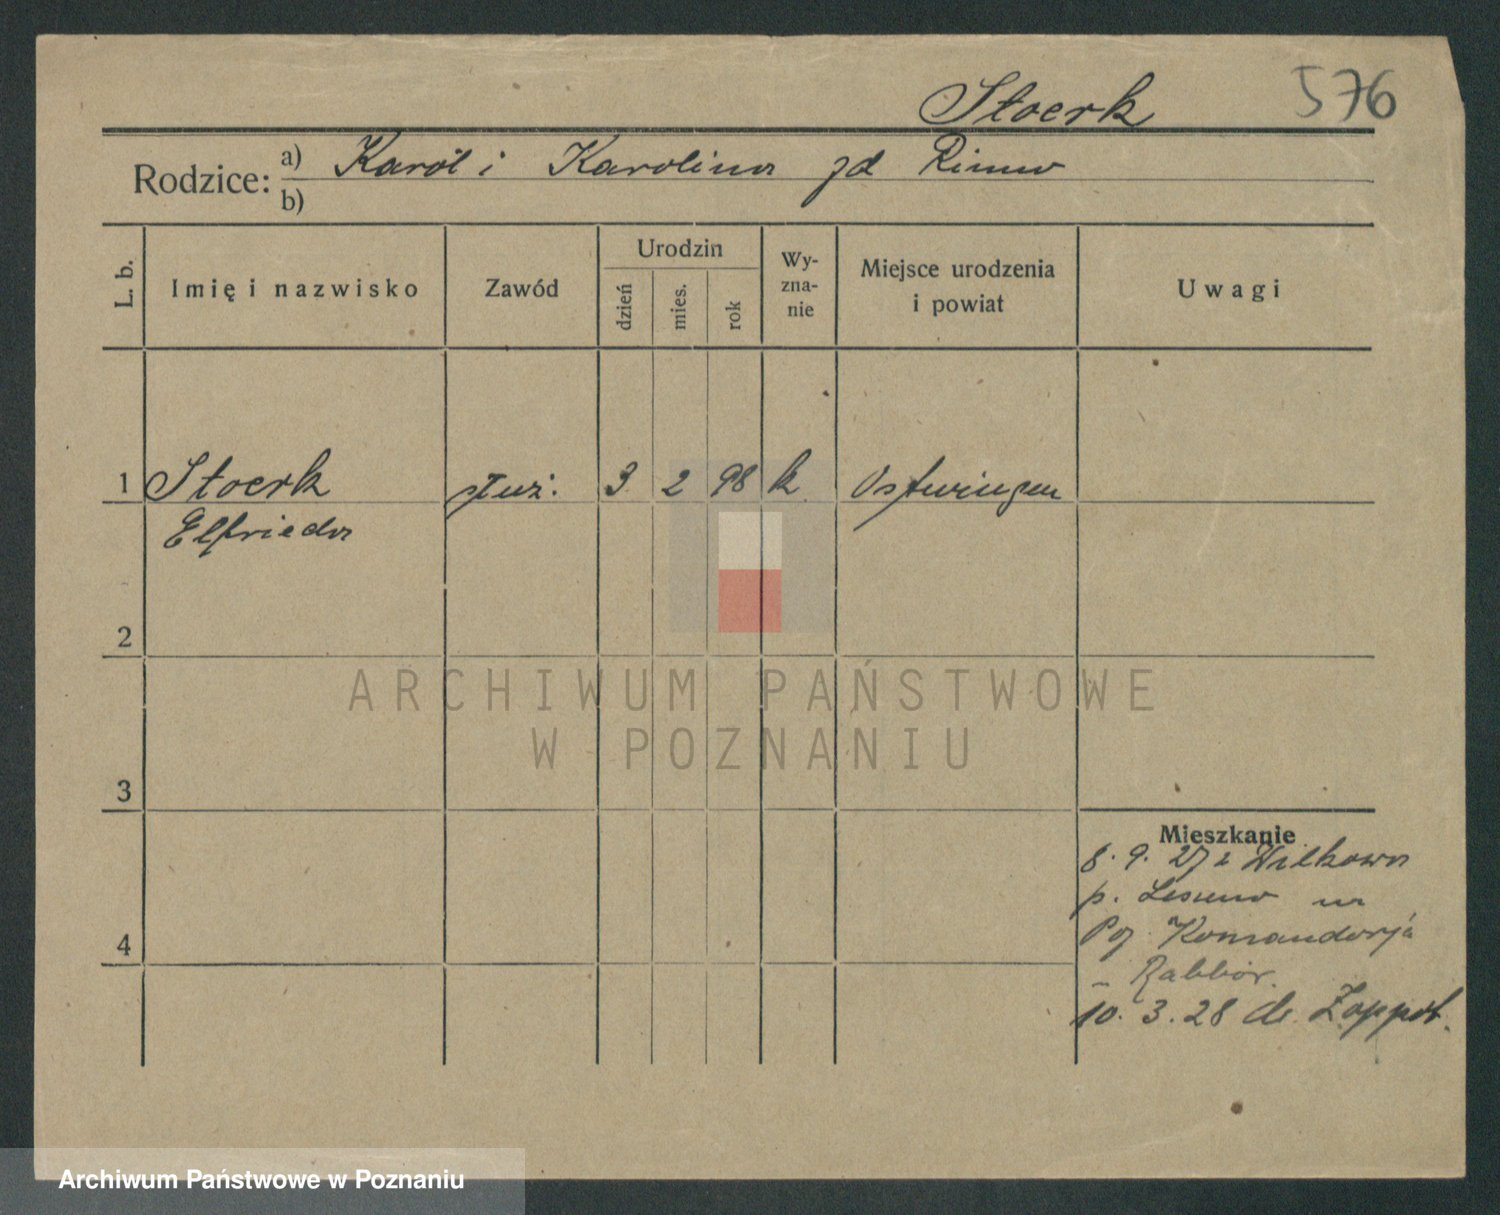 Stoerk 576
Rodzice: a) Karol i Karolina zd
b)
L. b. Imię i nazwisko Zawód Urodzin dzień mies. rok Wy- zna- nie Miejsce urodzenia i powiat Uwagi
1 Stoerk służ. 3 2 98 k Ostwingen
Elfrieda
2
ARCHIWUM PAŃSTWOWE
W POZNANIU
3
Mieszkanie
8. 9. 27 z Wilkowa
p. Leszno na
4 Poj. Komandorja
" Rabbor.
10. 3. 28 do Zoppot.
Archiwum Państwowe w Poznaniu